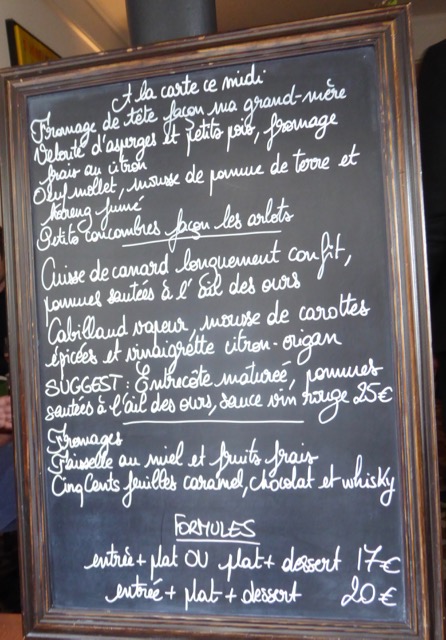 A la carte ce midi
Fromage de tête façon ma grand-mère
Velouté d'asperges et petits pois, fromage
frais au citron
Oeuf mollet, mousse de pomme de terre et
hareng fumé
Petits concombres façon les arlots
Cuisse de canard longuement confit,
pommes sautées à l'ail des ours
Cabillaud vapeur, mousse de carottes
épicées et vinaigrette citron-origan
SUGGEST : Entrecôte maturée, pommes
sautées à l'ail des ours, sauce vin rouge 25€
Fromages
Faisselle au miel et fruits frais
Cinq Cents feuilles caramel, chocolat et whisky
FORMULES
entrée + plat OU plat + dessert 17€
entrée + plat + dessert 20€